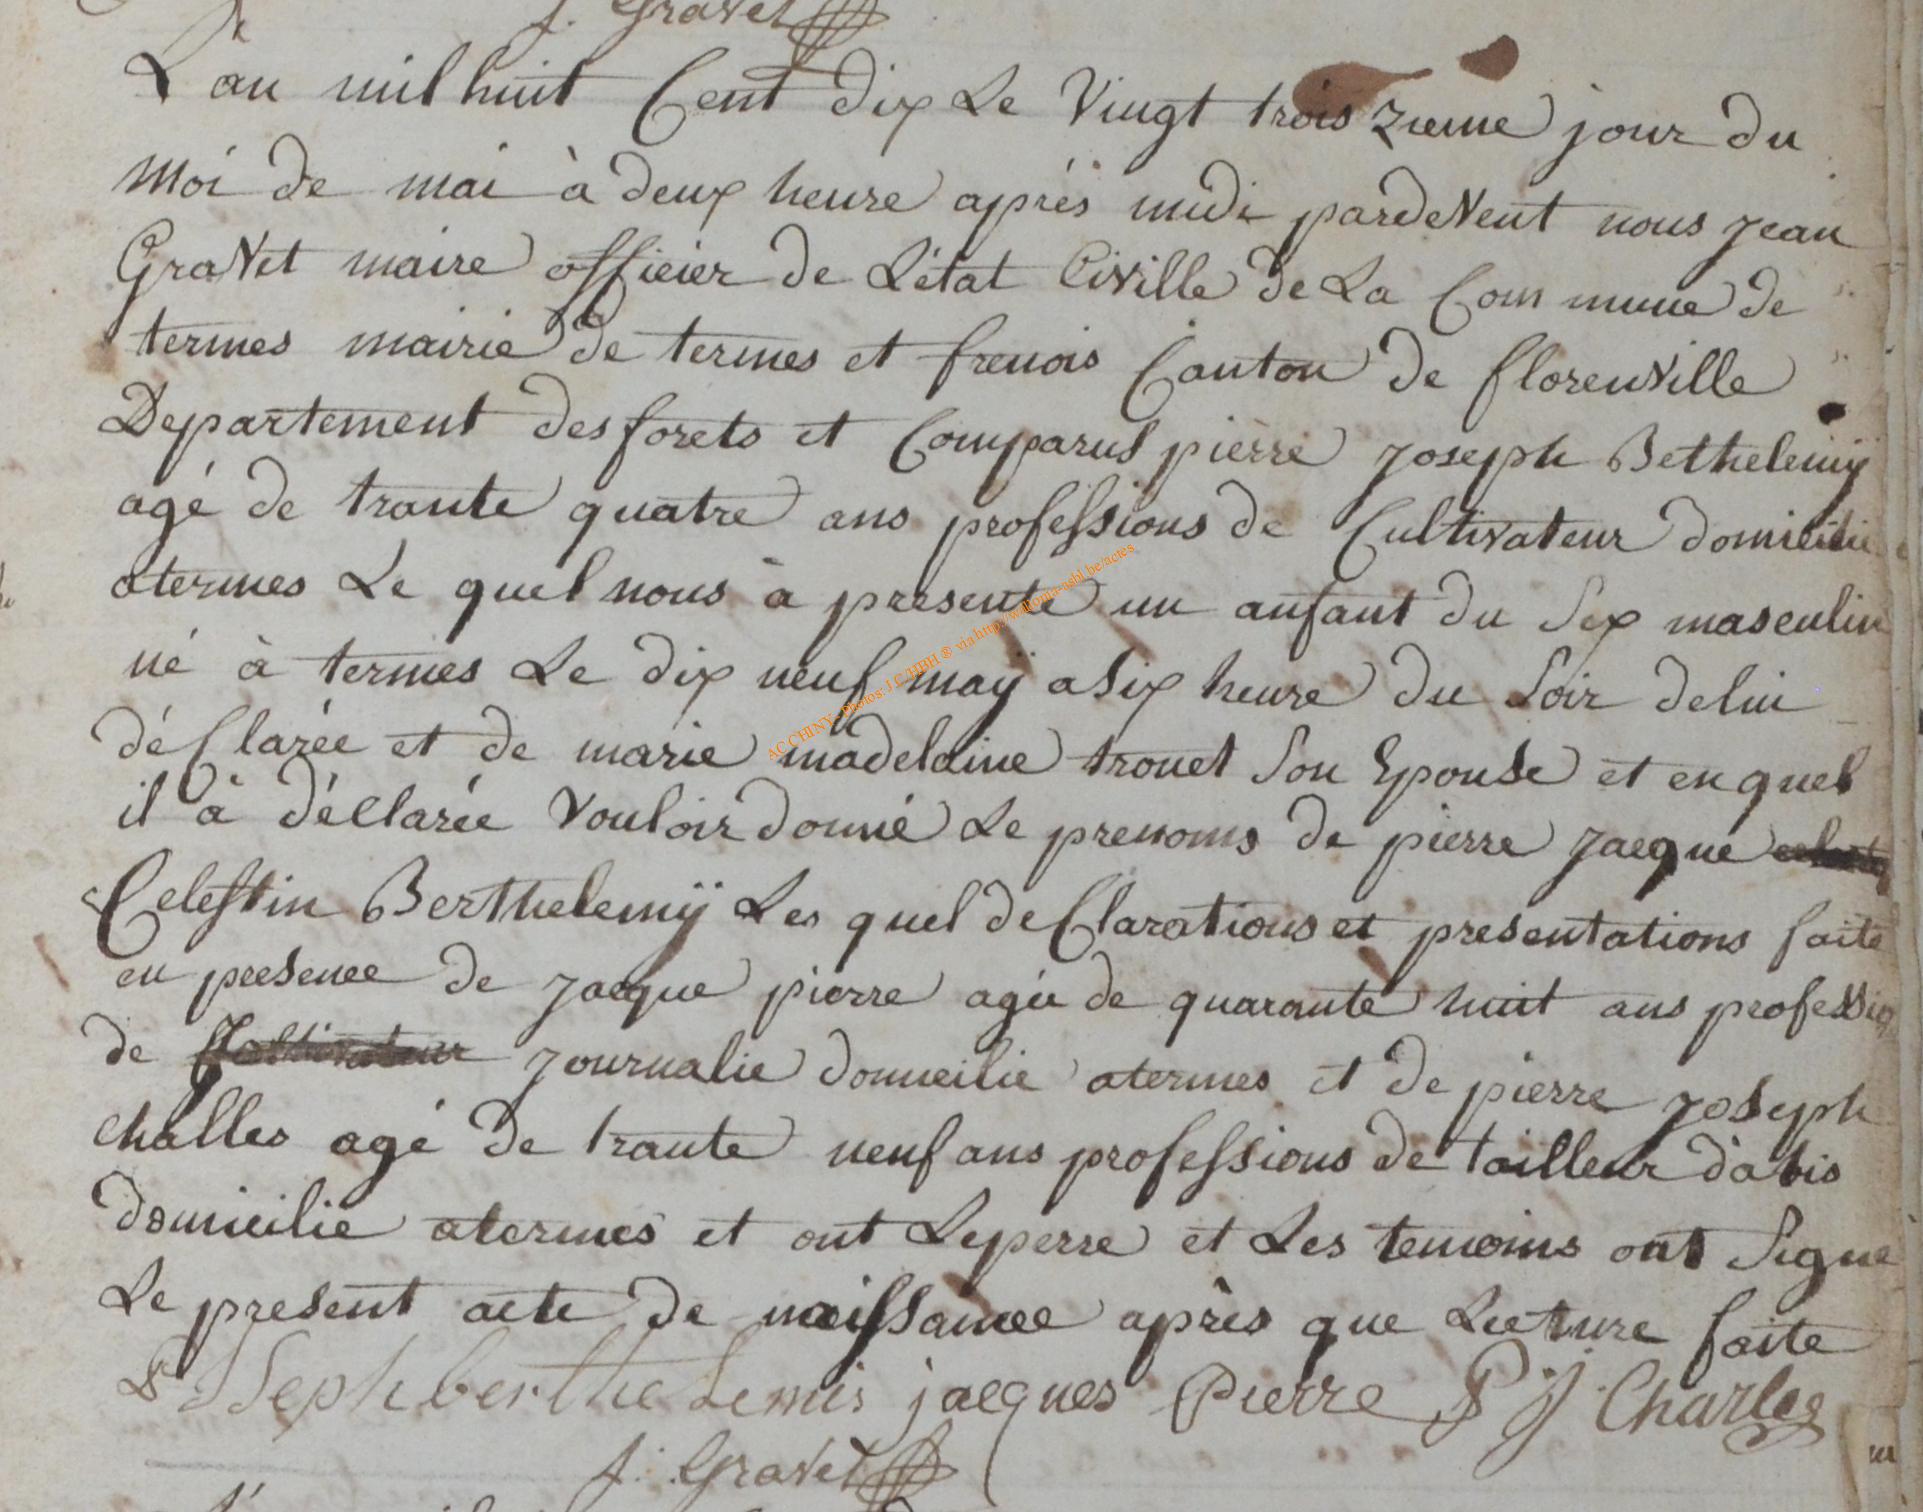 J. Gravet
L'an mil huit Cent dix Le Vingt trois zieme jour du
Moi de mai à deux heure aprés midi pardevent nous Jean
Gravet maire officier de L'état Civille de La Commune de
termes mairie de termes et frenois Canton de florenville
Departement des forets et Comparus pierre Joseph Bethelemÿ
agé de trante quatre ans professions de Cultivateur domicilie
atermes Le quel nous à presente un anfant du Sex masculin
né à termes Le dix neuf maÿ a Six heure du Soir de lui
déClarée et de marie madelaine trouet Son Epouse et en quel
il à déClarée Vouloir donné Le prenoms de pierre Jacque
Celestin Berthelemÿ Les quel deClarations et presentations faite
en presence de Jacque pierre agée de quarante huit ans professio
de Journalie domicilie atermes et de pierre Joseph
challes agé de trante neuf ans professions de tailleur d'abis
domicilie atermes et ont Le perre et Les temoins ont Signe
Le present acte de naissance après que Lecture faite
Joseph berthe Lemis jacques Pierre P J Charles
J. Gravet
AC CHINY - Photos: J.C. HBH ® via http://wallonia-asbl.be/actes